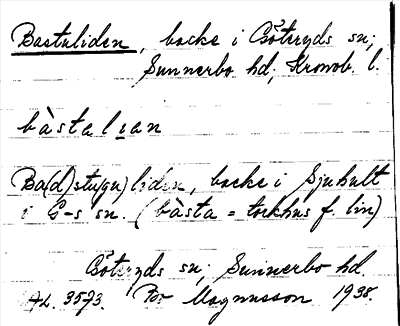 Bastuliden, backe i Göteryds sn;
Sunnerbo hd; Kronob. l.
bàstalian
Ba(d)stu(gu)liden, backe i Sjuhult
i G-s sn. (bàsta = torkhus f. lin)
Göteryds sn; Sunnerbo hd.
AL. 3573. Tor Magnusson 1938.